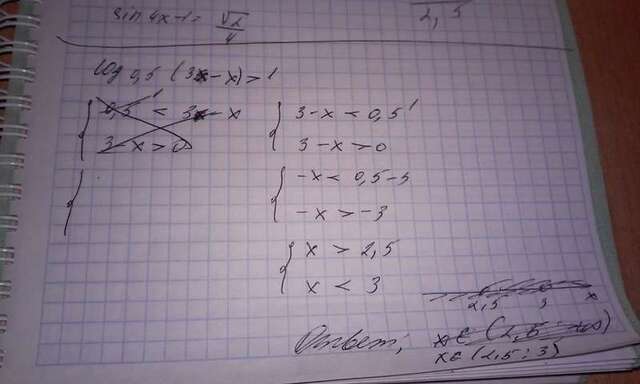 sin 4x-1 = √2/4
2,5
log 0,5 (3-x) > 1
0,5¹ < 3-x
3-x > 0
3-x < 0,5¹
3-x > 0
-x < 0,5-3
-x > -3
x > 2,5
x < 3
2,5 3 x
Ответ:
x∈(2,5; +∞)
x∈(2,5; 3)